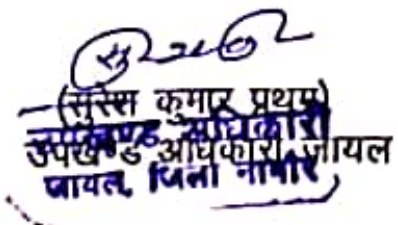 (सुरेश कुमार प्रथम)
उपखण्ड अधिकारी
उपखण्ड अधिकारी, जायल
जायल, जिला नागौर